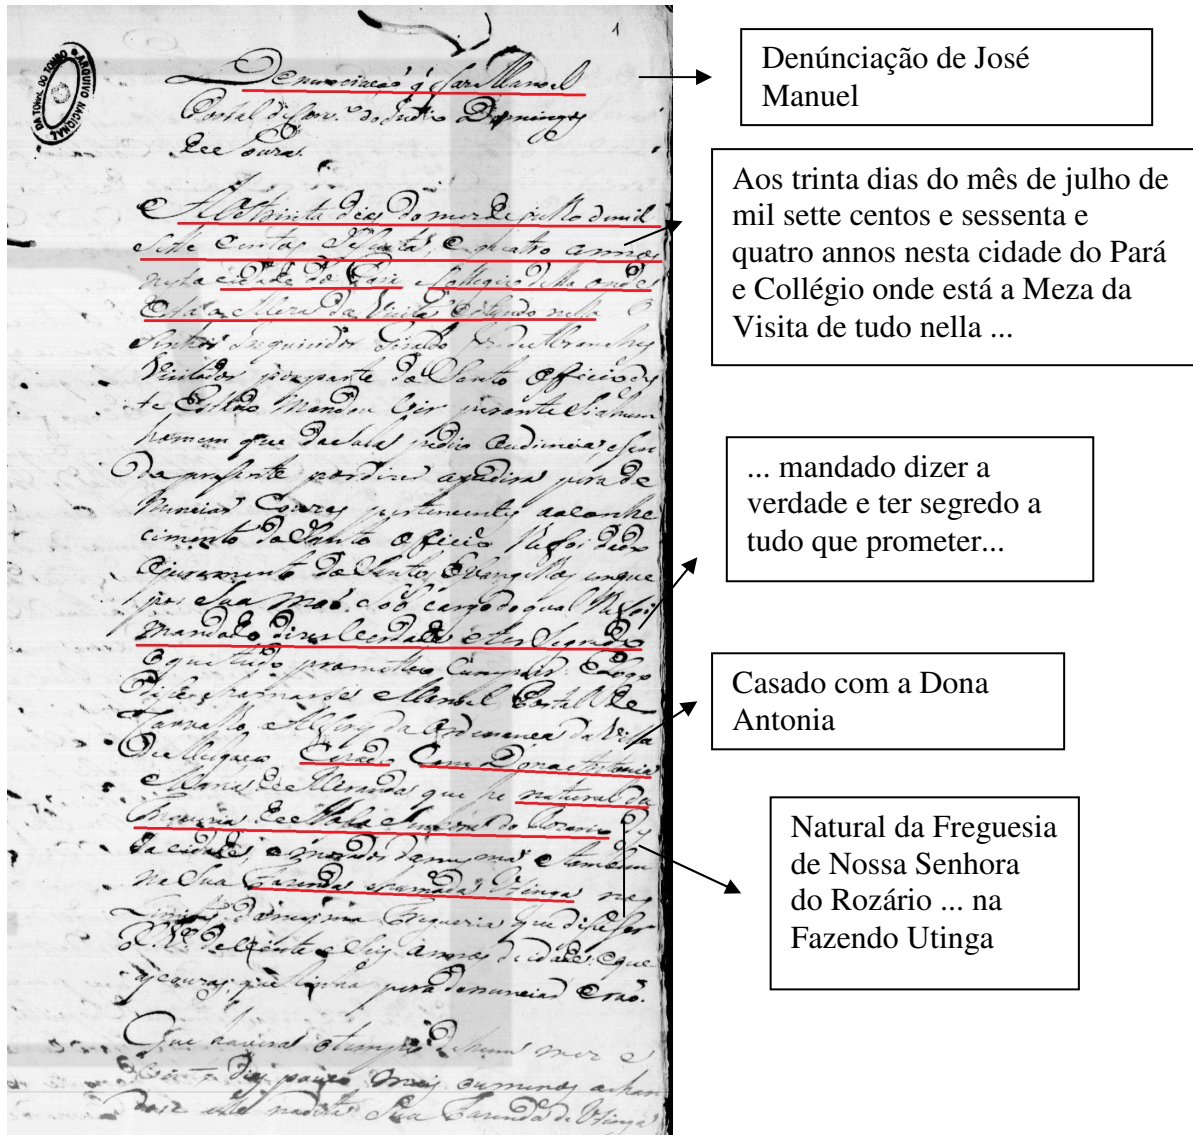 1
DA TORRE DO TOMBO • ARQUIVO NACIONAL
Denunciaçaõ q̃ faz Manoel
Portal de Carv.º do Indio Domingos
de Souza.
Aos trinta dias do mez de julho de mil
sette centos sesenta, e quatro annos
nesta cidade do Pará e Collegio della onde
está a Meza da Visita estando nella o
Senhor Inquizidor Giraldo Joze de Abranches
Vizitador por parte do Santo Officio des
te Estado mandou vir perante si a hum
homem que da sala pedio audiencia, e sen
do prezente por dizer a pedira para de
nunciar couzas pertencentes ao conhe
cimento do Santo Officio lhe foi dado
o juramento dos Santos Evangelhos em que
pos sua maõ. e sob cargo do qual lhe foi
mandado dizer verdade e ter segredo
o que tudo prometteo cumprir. E logo
disse chamarse Manoel Portal de
Carvalho Alferes da Ordenança da Villa
Cazado com Dona Antonia
Maria de Miranda que he natural da
Freguezia de Nossa Senhora do Rozario des
ta cidade, e morador na mesma e tambem
na sua Fazenda chamada Utinga nos
Limites da mesma Freguezia que disse ser
de vinte e seis annos de idade. E que
as couzas que tinha para denunciar eraõ.
Que haverá o tempo de hum mez e
dias pouco mais ou menos achan
dose elle na dita sua Fazenda de Utinga
Denúnciação de José
Manuel
Aos trinta dias do mês de julho de
mil sette centos e sessenta e
quatro annos nesta cidade do Pará
e Collégio onde está a Meza da
Visita de tudo nella ...
... mandado dizer a
verdade e ter segredo a
tudo que prometer...
Casado com a Dona
Antonia
Natural da Freguesia
de Nossa Senhora
do Rozário ... na
Fazendo Utinga